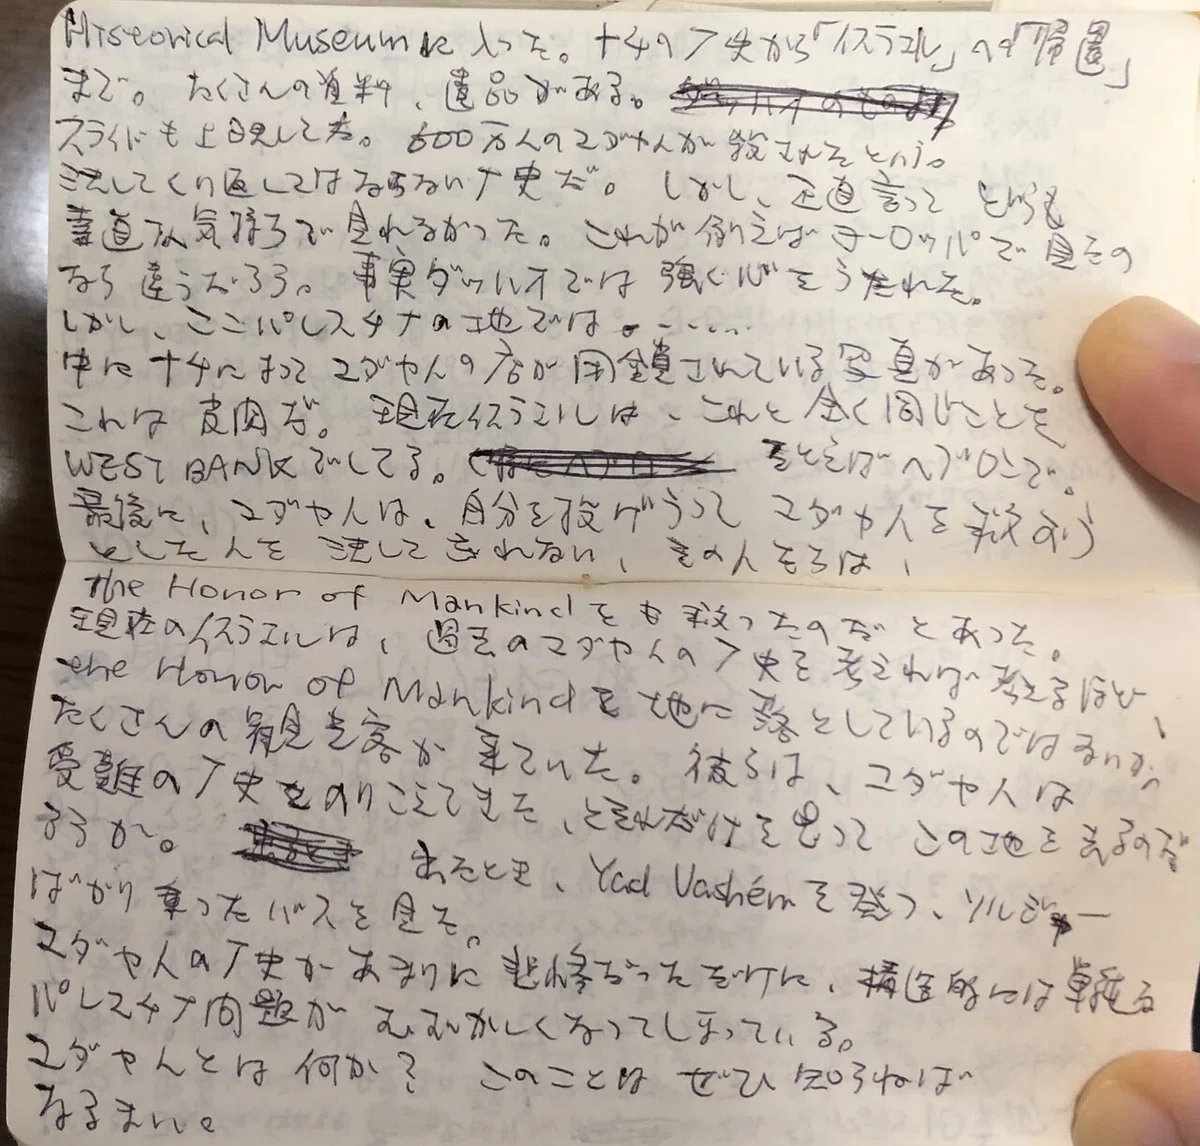 Historical Museumに入った。ナチの歴史から「イスラエル」への「帰還」
まで。たくさんの資料、遺品がある。
スライドも上映してた。600万人のユダヤ人が殺されたという。
決してくり返してはならない歴史だ。しかし、正直言って とても
素直な気持ちで見れなかった。これが例えばヨーロッパで見たの
なら違うだろう。事実ダッハオでは強く心をうたれた。
しかし、ここパレスチナの地では。・・・・・
中にナチによってユダヤ人の店が閉鎖されている写真があった。
これは皮肉だ。現在イスラエルは、これと全く同じことを
WEST BANKでしてる。 たとえばヘブロンで。
最後に、ユダヤ人は、自分を投げうってユダヤ人を救おう
とした人を決して忘れない、その人たちは、
the Honor of Mankindをも救ったのだとあった。
現在のイスラエルは、過去のユダヤ人の歴史を考えれば考えるほど、
the Honor of Mankindを地に落としているのではないか。
たくさんの観光客が来ていた。彼らは、ユダヤ人は
受難の歴史をのりこえてきた、とそれだけを思って この地を去るのだ
ろうか。 出るとき、Yad Vashémを発つ、ソルジャー
ばかり乗ったバスを見た。
ユダヤ人の歴史があまりに悲惨だっただけに、構造的には単純な
パレスチナ問題がむずかしくなってしまっている。
ユダヤ人とは何か? このことはぜひ知らねば
なるまい。